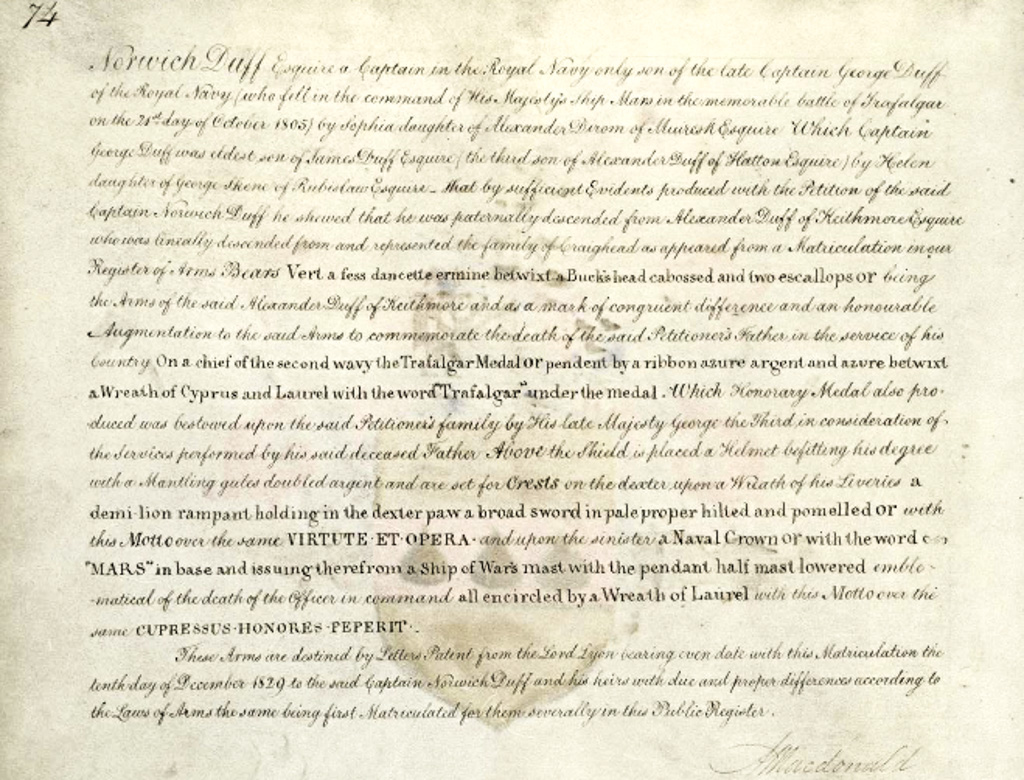 74
Norwich Duff Esquire a Captain in the Royal Navy only son of the late Captain George Duff
of the Royal Navy (who fell in the command of His Majesty's Ship Mars in the memorable battle of Trafalgar
on the 21st day of October 1805) by Sophia daughter of Alexander Dirom of Muiresk Esquire Which Captain
George Duff was eldest son of James Duff Esquire (the third son of Alexander Duff of Hatton Esquire) by Helen
daughter of George Skene of Rubislaw Esquire – that by sufficient Evidents produced with the Petition of the said
Captain Norwich Duff he shewed that he was paternally descended from Alexander Duff of Keithmore Esquire
who was lineally descended from and represented the family of Craighead as appeared from a Matriculation in our
Register of Arms Bears Vert a fess dancette ermine betwixt a Buck's head cabossed and two escallops or being
the Arms of the said Alexander Duff of Keithmore and as a mark of congruent difference and an honourable
Augmentation to the said Arms to commemorate the death of the said Petitioner's Father in the service of his
Country On a chief of the second wavy the Trafalgar Medal or pendent by a ribbon azure argent and azure betwixt
a Wreath of Cyprus and Laurel with the word "Trafalgar" under the medal. Which Honorary Medal also pro-
duced was bestowed upon the said Petitioner's family by His late Majesty George the Third in consideration of
the Services performed by his said deceased Father Above the Shield is placed a Helmet befitting his degree
with a Mantling gules doubled argent and are set for Crests on the dexter upon a Wreath of his Liveries a
demi-lion rampant holding in the dexter paw a broad sword in pale proper hilted and pomelled or with
this Motto over the same VIRTUTE·ET·OPERA· and upon the sinister a Naval Crown or with the word
"MARS" in base and issuing therefrom a Ship of War's mast with the pendant half mast lowered emble-
-matical of the death of the Officer in command all encircled by a Wreath of Laurel with this Motto over the
same CUPRESSUS·HONORES·PEPERIT·.
These Arms are destined by Letters Patent from the Lord Lyon bearing even date with this Matriculation the
tenth day of December 1829 to the said Captain Norwich Duff and his heirs with due and proper differences according to
the Laws of Arms the same being first Matriculated for them severally in this Public Register.
JMacdonald